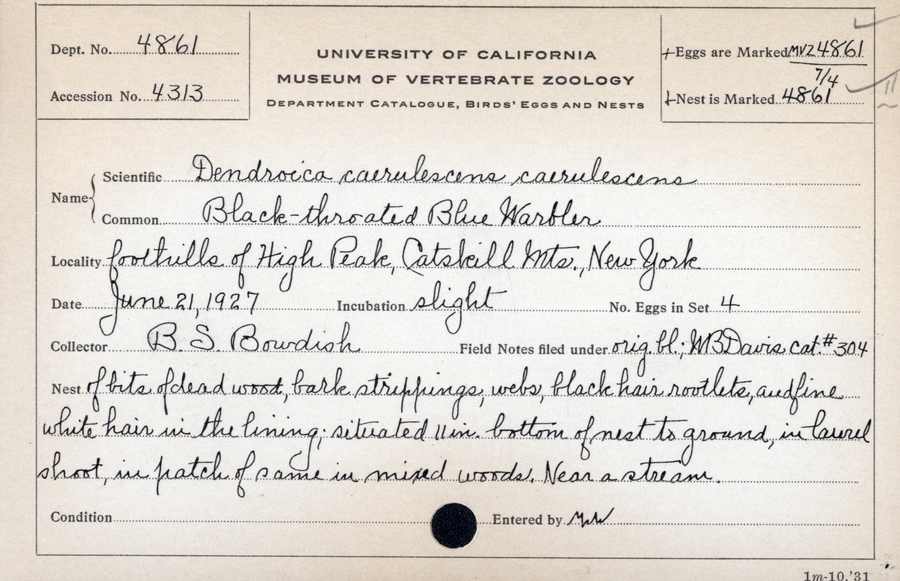 Dept. No. 4861
Accession No. 4313
UNIVERSITY OF CALIFORNIA
MUSEUM OF VERTEBRATE ZOOLOGY
DEPARTMENT CATALOGUE, BIRDS' EGGS AND NESTS
Eggs are Marked MVZ 4861
7/4
Nest is Marked 4861
Name
Scientific Dendroica caerulescens caerulescens
Common Black-throated Blue Warbler
Locality foothills of High Peak, Catskill Mts., New York
Date June 21, 1927 Incubation slight No. Eggs in Set 4
Collector B. S. Bowdish Field Notes filed under orig. bl.; WBDavis cat. #304
Nest of bits of dead wood, bark strippings, webs, black hair rootlets, and fine
white hair in the lining; situated 11 in. bottom of nest to ground, in laurel
shoot, in patch of same in mixed woods. Near a stream.
Condition Entered by
1m-10,'31